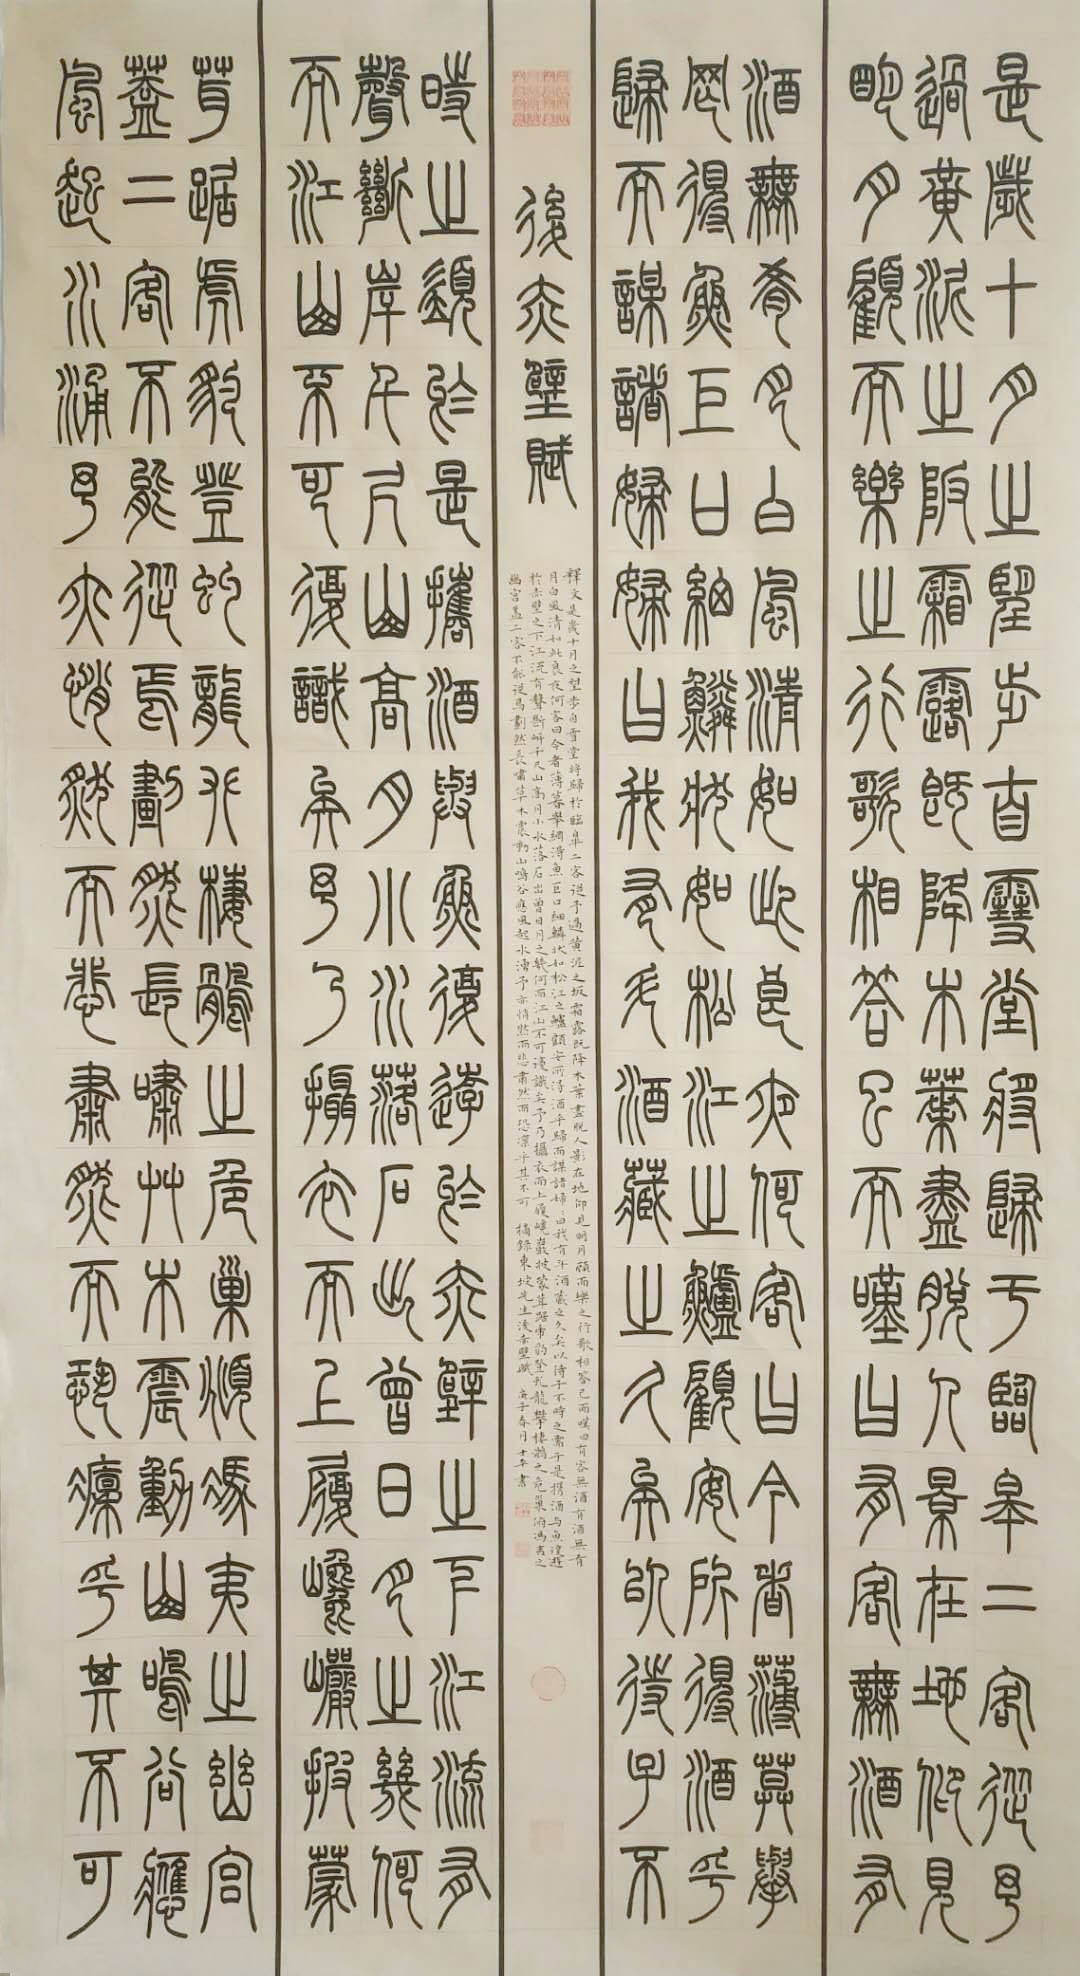 是歲十月之望步自雪堂將歸于臨皋二客從予
過黃泥之阪霜露既降木葉盡脫人景在地仰見
明月顧而樂之行歌相答已而嘆曰有客無酒有
酒無肴月白風清如此良夜何客曰今者薄莫舉
网得魚巨口細鱗狀如松江之鱸顧安所得酒乎
歸而謀諸婦婦曰我有斗酒藏之久矣以待子不
後赤壁賦
釋文是歲十月之望步自雪堂將歸於臨皋二客從予過黃泥之坂霜露既降木葉盡脫人影在地仰見明月顧而樂之行歌相答已而嘆曰有客無酒有酒無肴
月白風清如此良夜何客曰今者薄暮舉網得魚巨口細鱗狀如松江之鱸顧安所得酒乎歸而謀諸婦:曰我有斗酒藏之久矣以待子不時之需于是攜酒与魚復遊
於赤壁之下江流有聲斷岸千尺山高月小水落石出曾日月之幾何而江山不可復識矣予乃攝衣而上履巉巖披蒙茸踞虎豹登虬龍攀棲鶻之危巢俯馮夷之
幽宮蓋二客不能從焉劃然長嘯草木震動山鳴谷應風起水湧予亦悄然而悲肅然而恐凜乎其不可 摘錄東坡先生後赤壁賦 庚子春月士平書
時之須於是攜酒與魚復遊於赤壁之下江流有
聲斷岸千尺山高月小水落石出曾日月之幾何
而江山不可復識矣予乃攝衣而上履巉巖披蒙
茸踞虎豹登虯龍攀棲鶻之危巢頫馮夷之幽宮
蓋二客不能從焉劃然長嘯艸木震動山鳴谷應
風起水涌予亦悄然而悲肅然而恐凜乎其不可